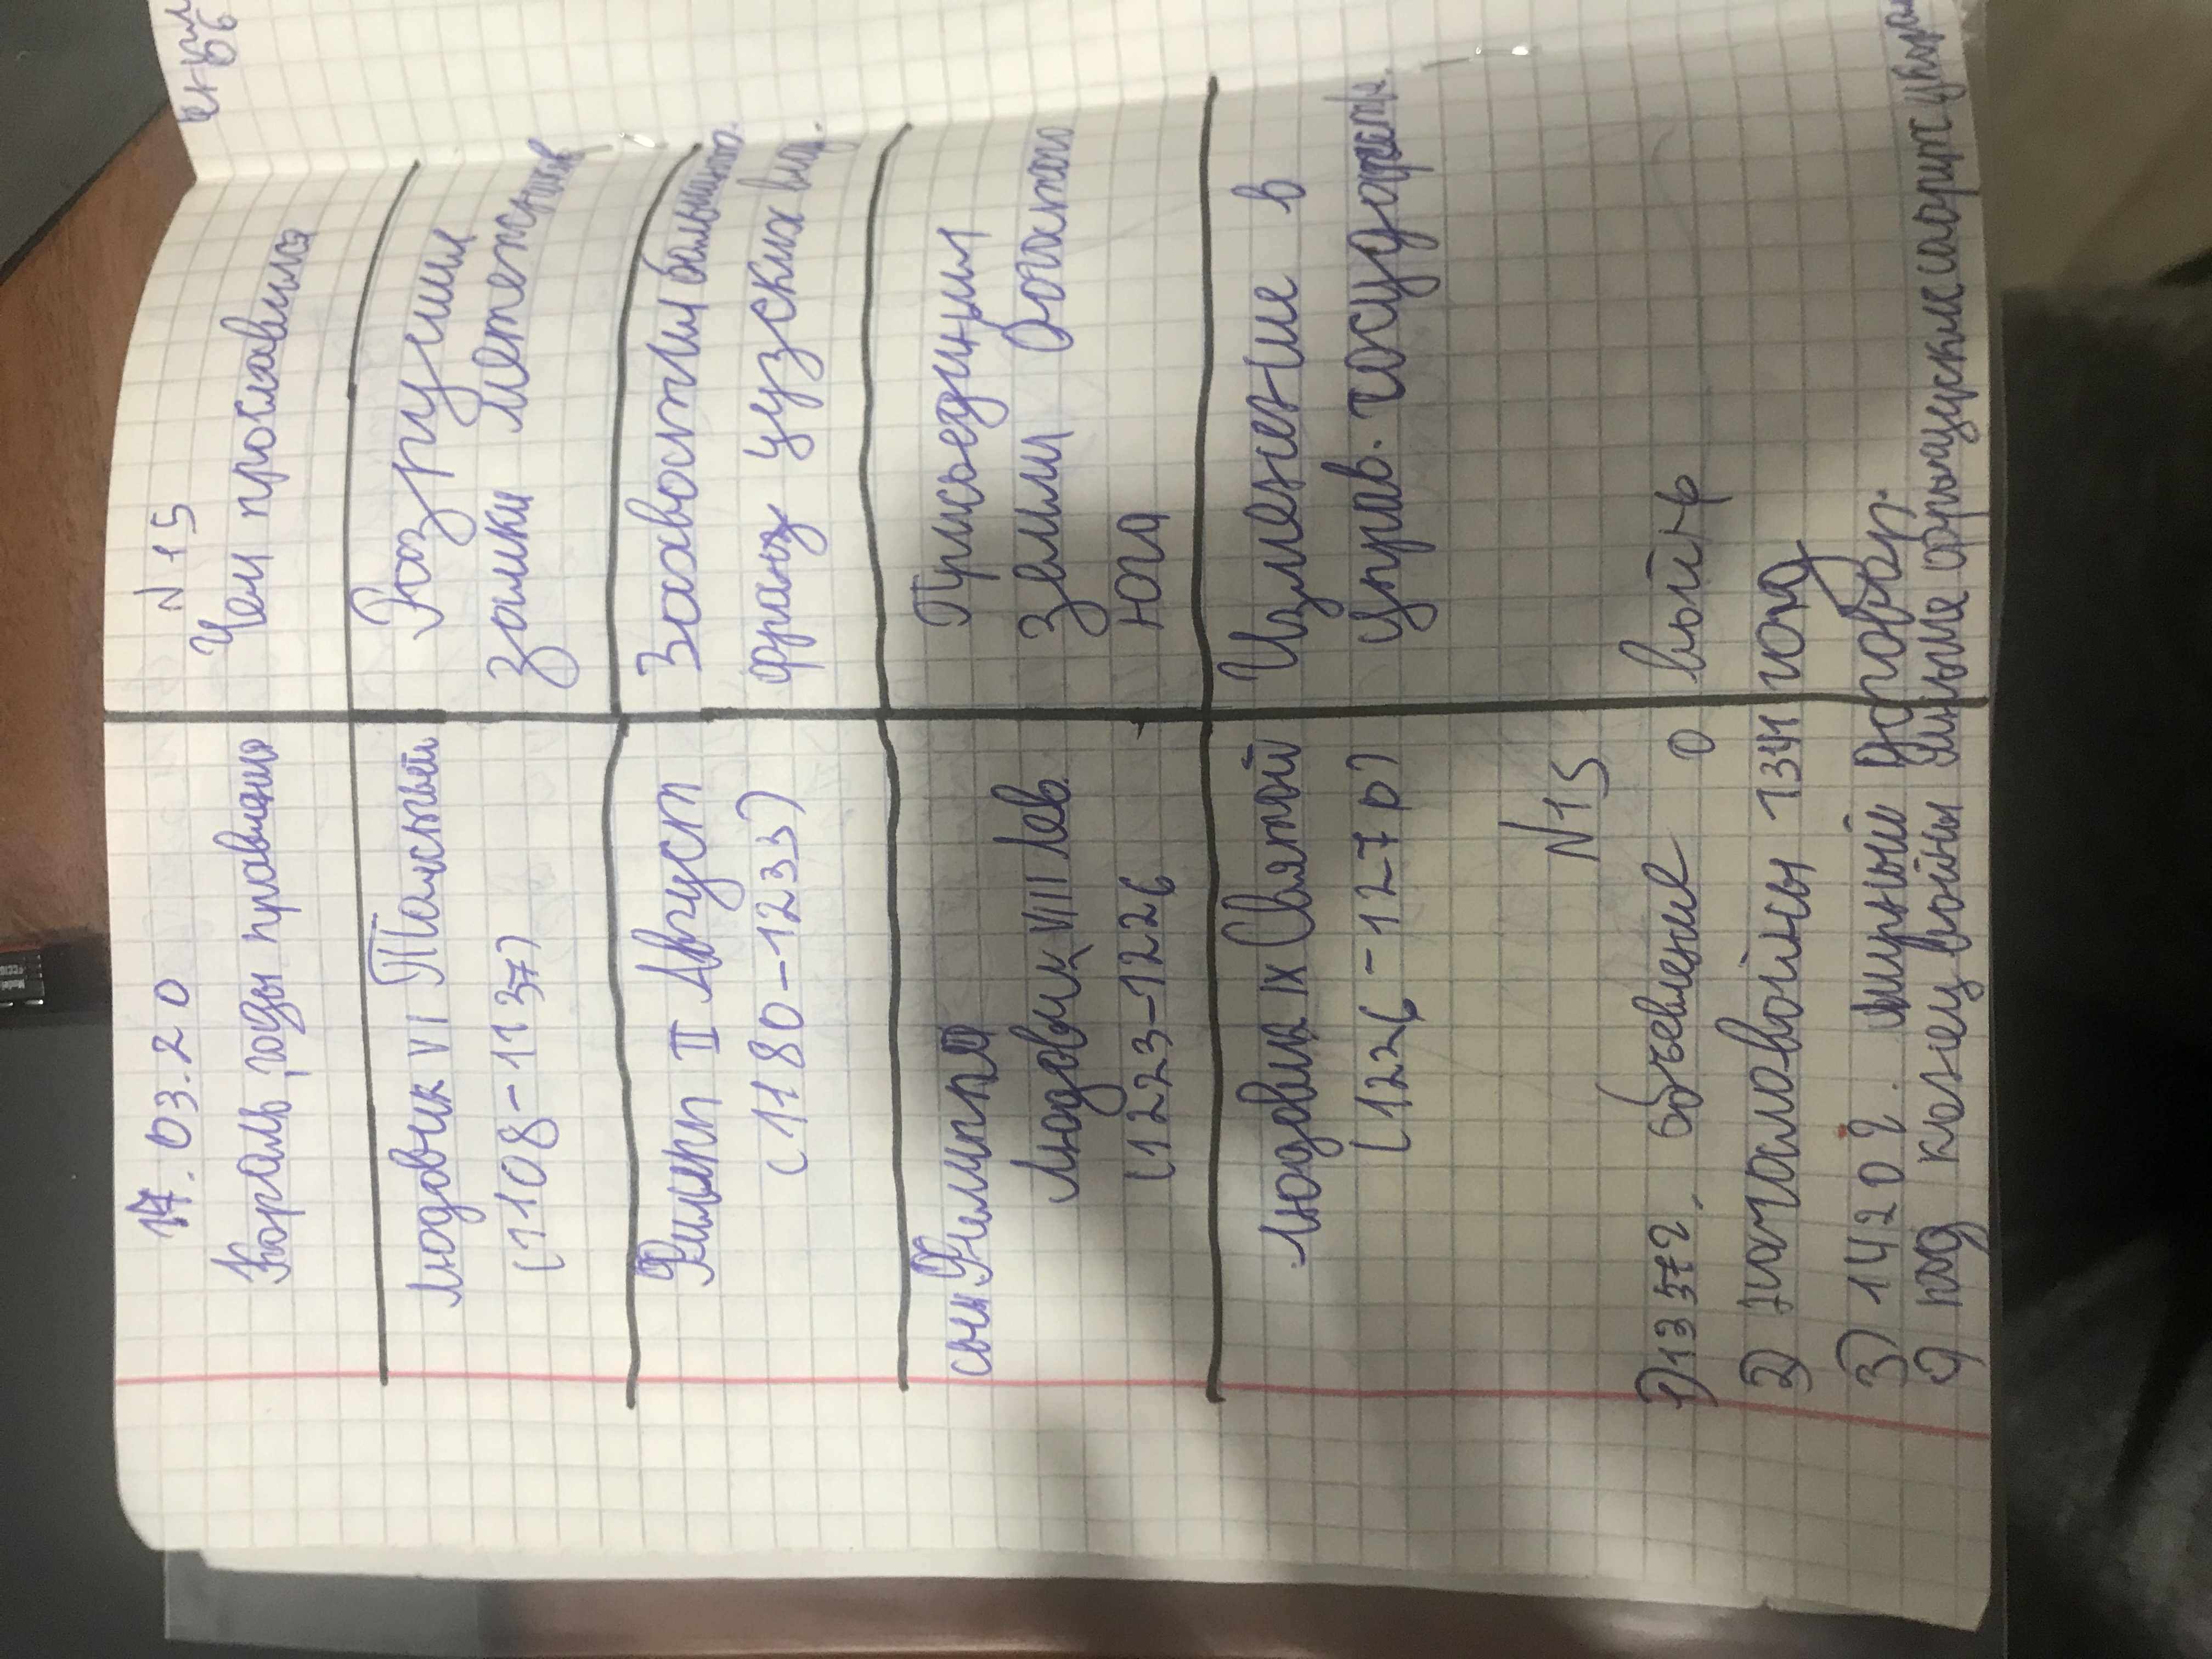 17.03.20
N 15
Король, годы правления
Чем прославился
Людовик VI Толстый
(1108-1137)
Разрушил
замки мятежников
Филипп II Август
(1180-1233)
Захватил большинст.
француузских вла.
сын Филиппа
Людовик VIII Лев.
(1223-1226
Присоединил
земли богатого
юга
Людовик IX Святой
(1226-127р)
Изменение в
управ. государств.
N15
1) 1337г. объевление о войне
2) начало войны 1341 год
3) 1420г. мирный договор.
4) год конец войны